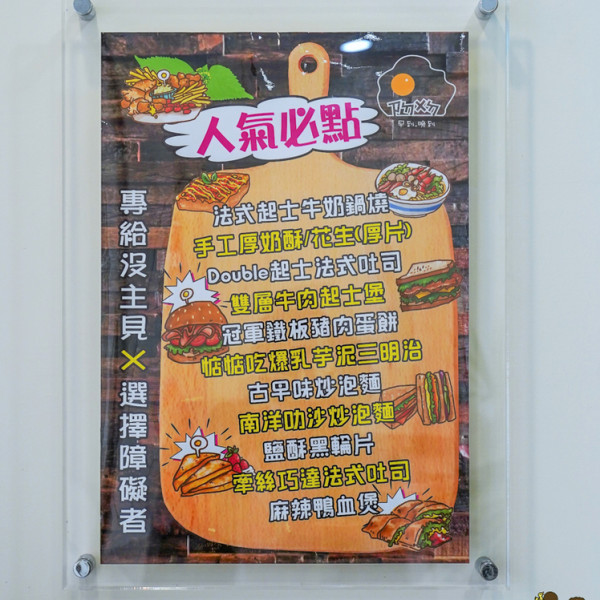 人氣必點
早到、晚到
專給沒主見×選擇障礙者
法式起士牛奶鍋燒
手工厚奶酥/花生(厚片)
Double起士法式吐司
雙層牛肉起士堡
冠軍鐵板豬肉蛋餅
惦惦吃爆乳芋泥三明治
古早味炒泡麵
南洋叻沙炒泡麵
鹽酥黑輪片
牽絲巧達法式吐司
麻辣鴨血煲